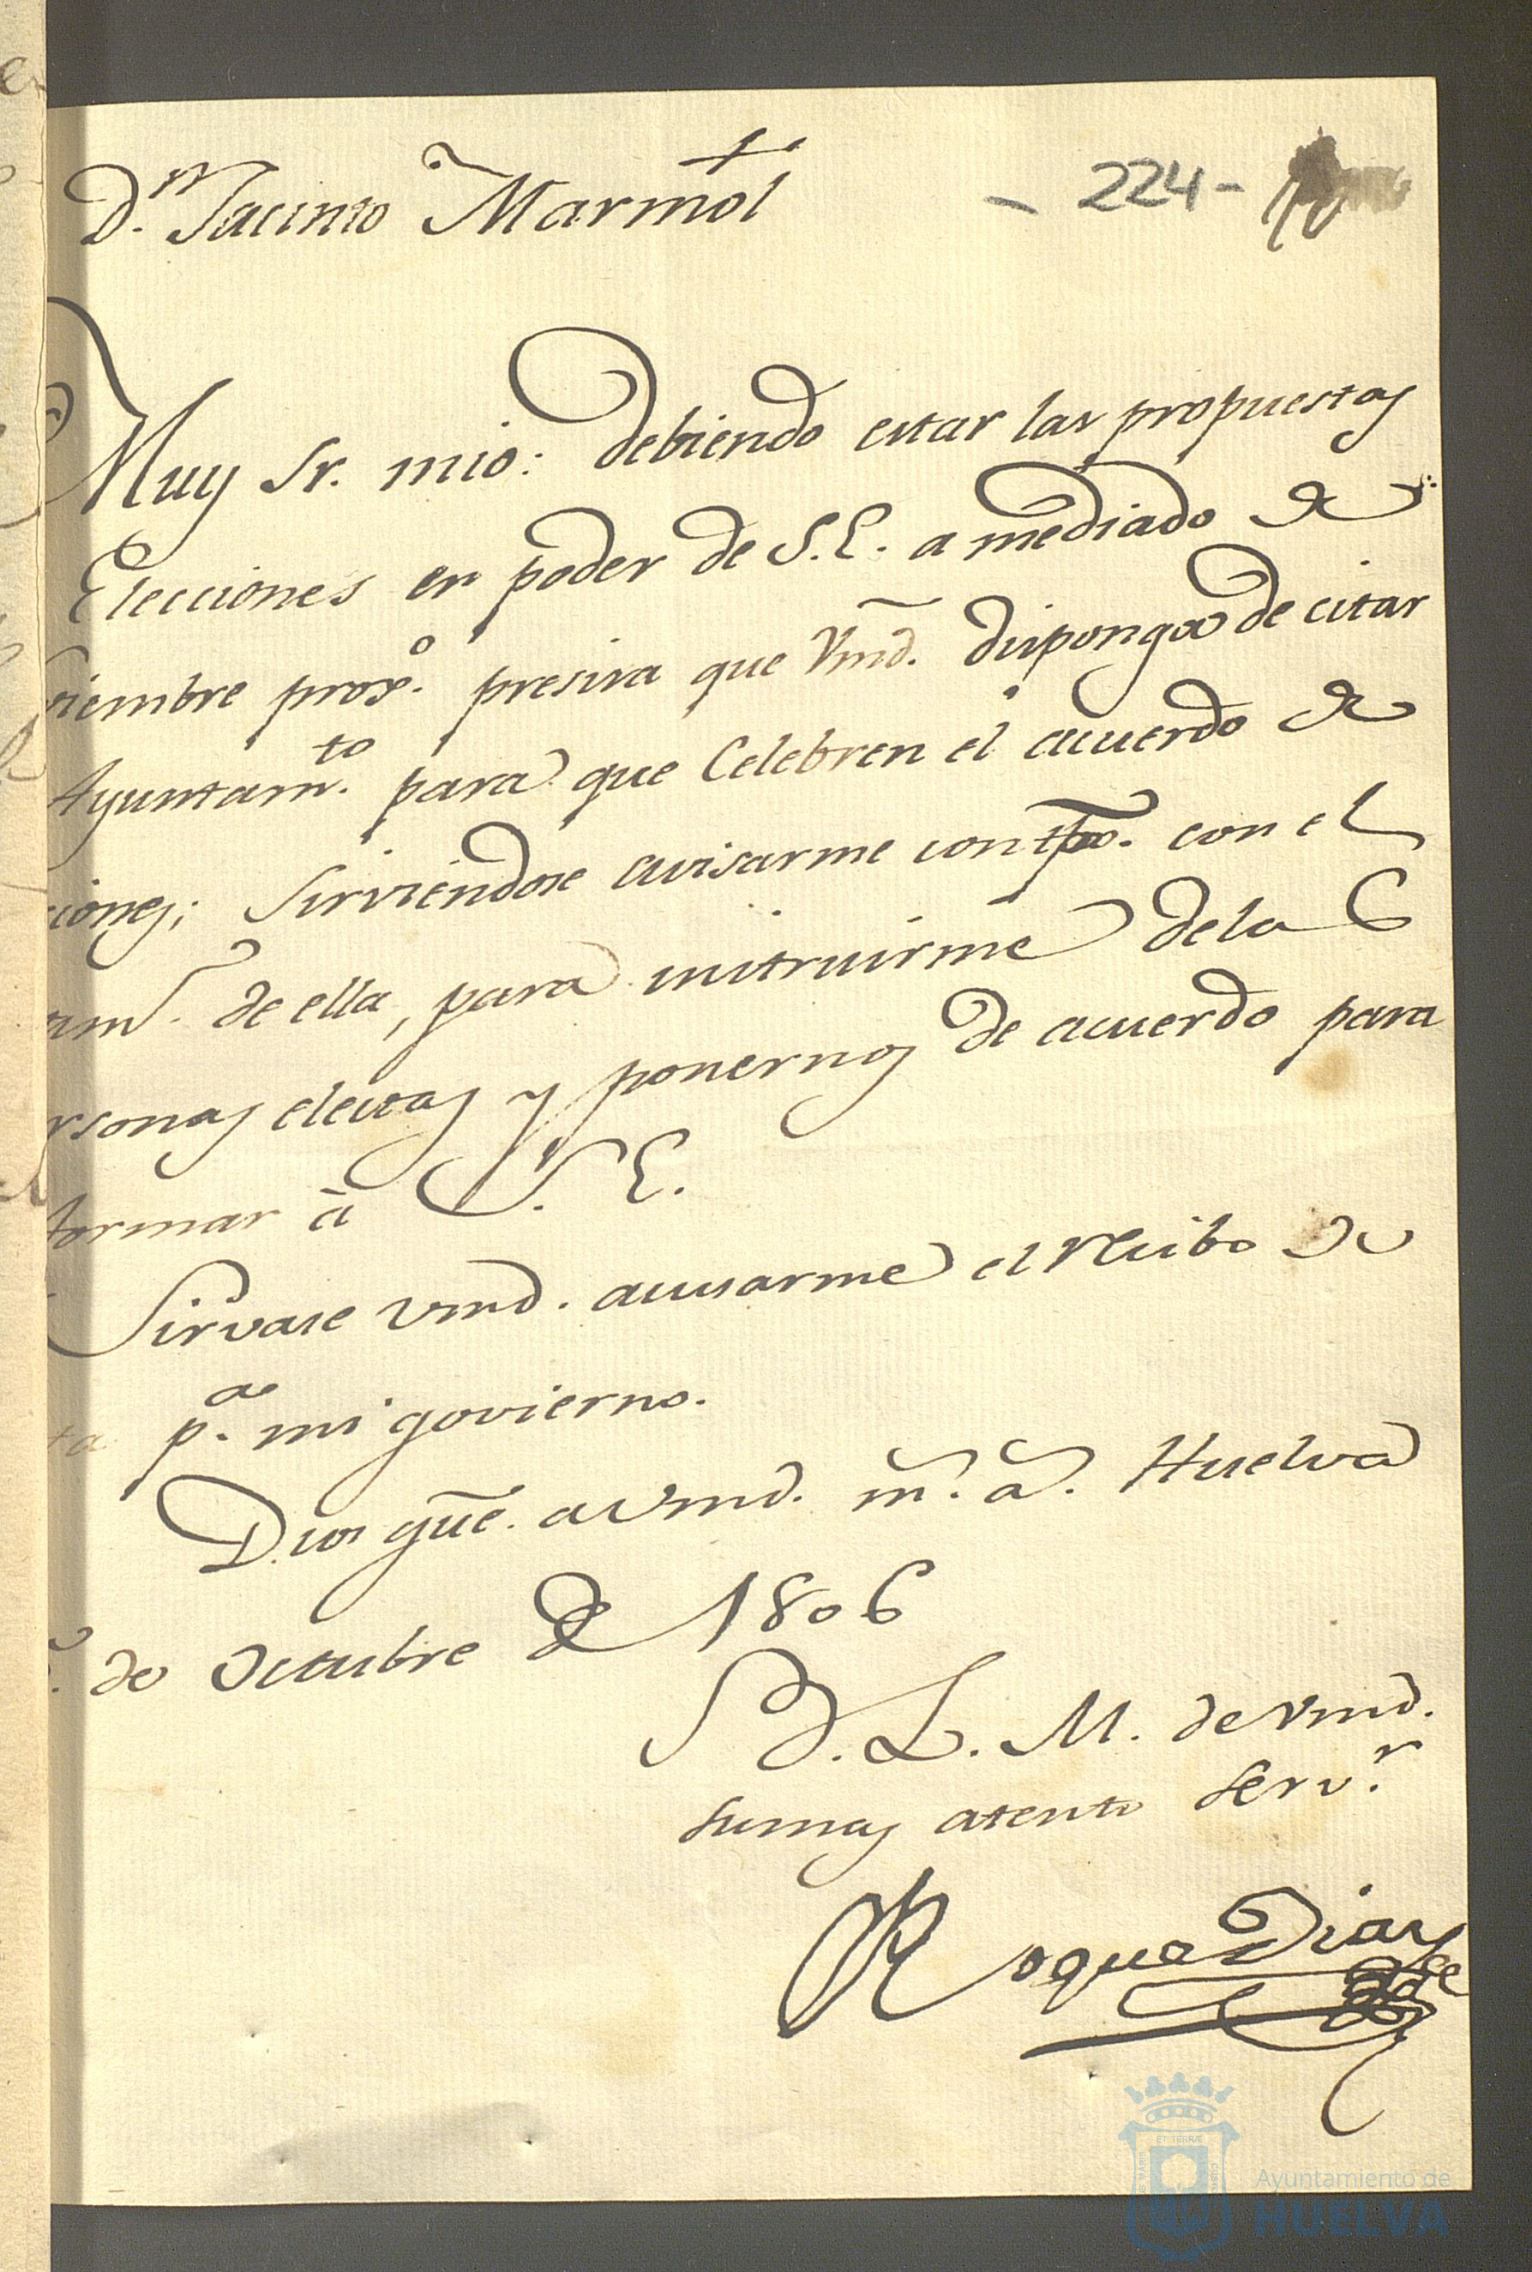 ✝
Dn. Jacinto Marmol
- 224 -
Muy Sr. mio: debiendo estar las propuestas
Elecciones en poder de S.E. a mediado de
viembre proxo. presisa que Vmd. disponga de citar
Ayuntamto. para que Celebren el acuerdo de
ciones; sirviendose avisarme con tpo. con el
de ella, para instruirme dela
rsonas electas y ponernos de acuerdo para
formar à S. E.
Sirvase Vmd. acusarme el recibo de
ta pa. mi govierno.
Dios gũe. a Vmd. ms. as. Huelva
de Octubre de 1806
B. L. M. de Vmd.
su mas atento servr.
Roque Diaz
ET TERRÆ
Ayuntamiento de
HUELVA